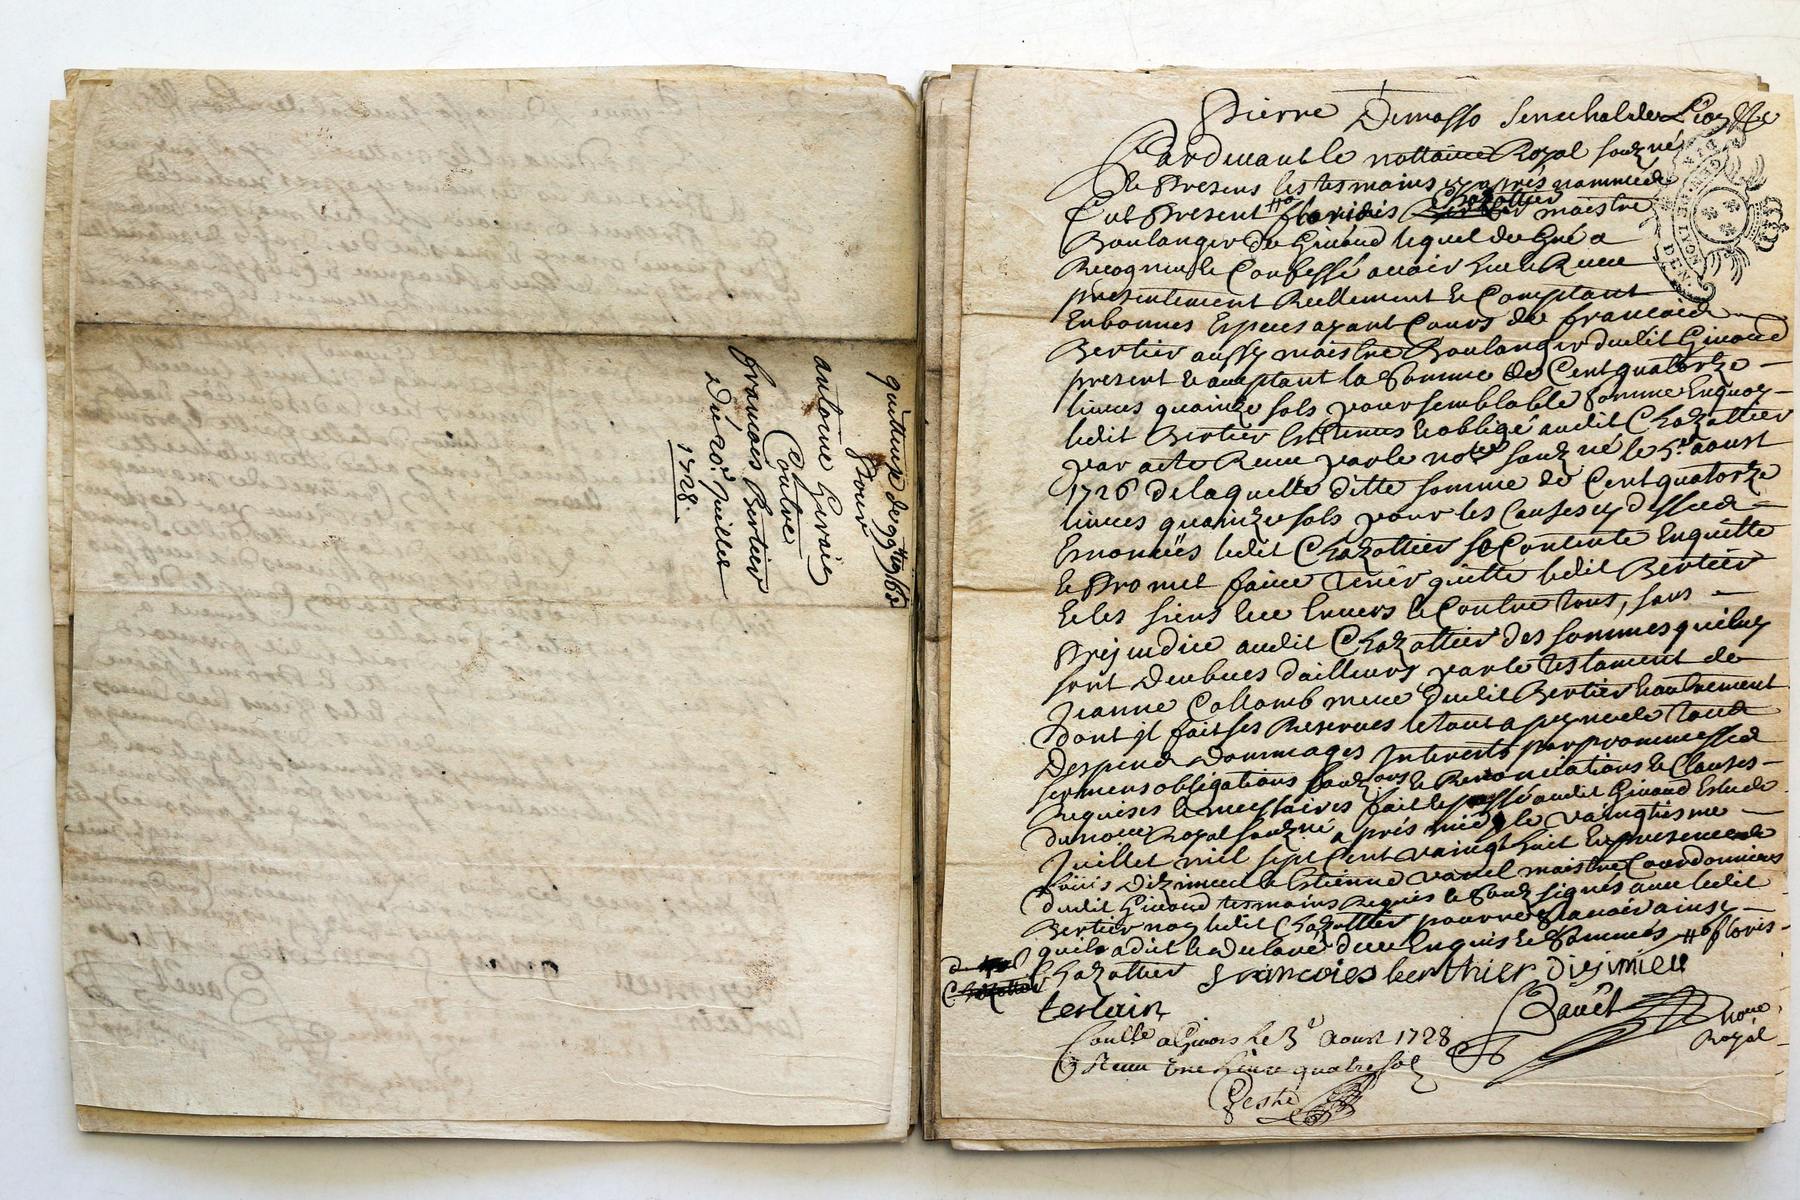 quittance de 99
Pour
antoine Gervais
Contre
francois Bertier
Du 20e Juillet
1728
Pierre Demasso Senechal de Lion &c
Pardevant le nottaire Royal souzné
& Presens les tesmoins cy apres nommés
fut Present Chazottier maistre
Boulanger de Givord lequel de gré a
Recogneu & Confessé avoir heu & Receu
presentement Reellement & Comptant
En bonnes Especes ayant Cours de francois
Bertier aussy maistre Boulanger dudit Givord
present & acceptant la Somme de Cent quatorze
livres quainze sols pour semblable somme En quoy
ledit Bertier Est tenus & obligé audit Chazottier
par acte Receu par le note souzné le 5e aoust
1726 de laquelle ditte somme de Cent quatorze
livres quainze sols pour les Causes cy dessus
Enoncées ledit Chazottier se Contente En quitte
& Promet faire tenir quitte ledit Bertier
& les siens Envers & Contre tous, sans
Prejudice audit Chazottier des sommes qui luy
sont deubues dailleurs par le testament de
Jeanne Collomb mere dudit Bertier & autrement
dont il fait ses Reserves le tout a peyne de tous
Despens Dommages Interests par promesses
sermens obligations souz ons & Renonciations & Clauses
Requises & necessaires fait & passé audit Givord Estude
du noire Royal souzné apres midy le vaingtiesme
Juillet mil sept Cent vaingt huit En presence de
Dizimieu & Estienne vanel maistre Cordonniers
dudit Givord tesmoins Requis & Souz signés avec ledit
Bertier non ledit Chazottier pour ne scavoir ainsy
quil a dit & declaré de ce Enquis & Sommé floris
Chazottier francois berthier Disimieu
terlain
Bauët noire
Royal
Conllé a Givors le 3e Aoust 1728
Receu une livre quatre sols
Gesté